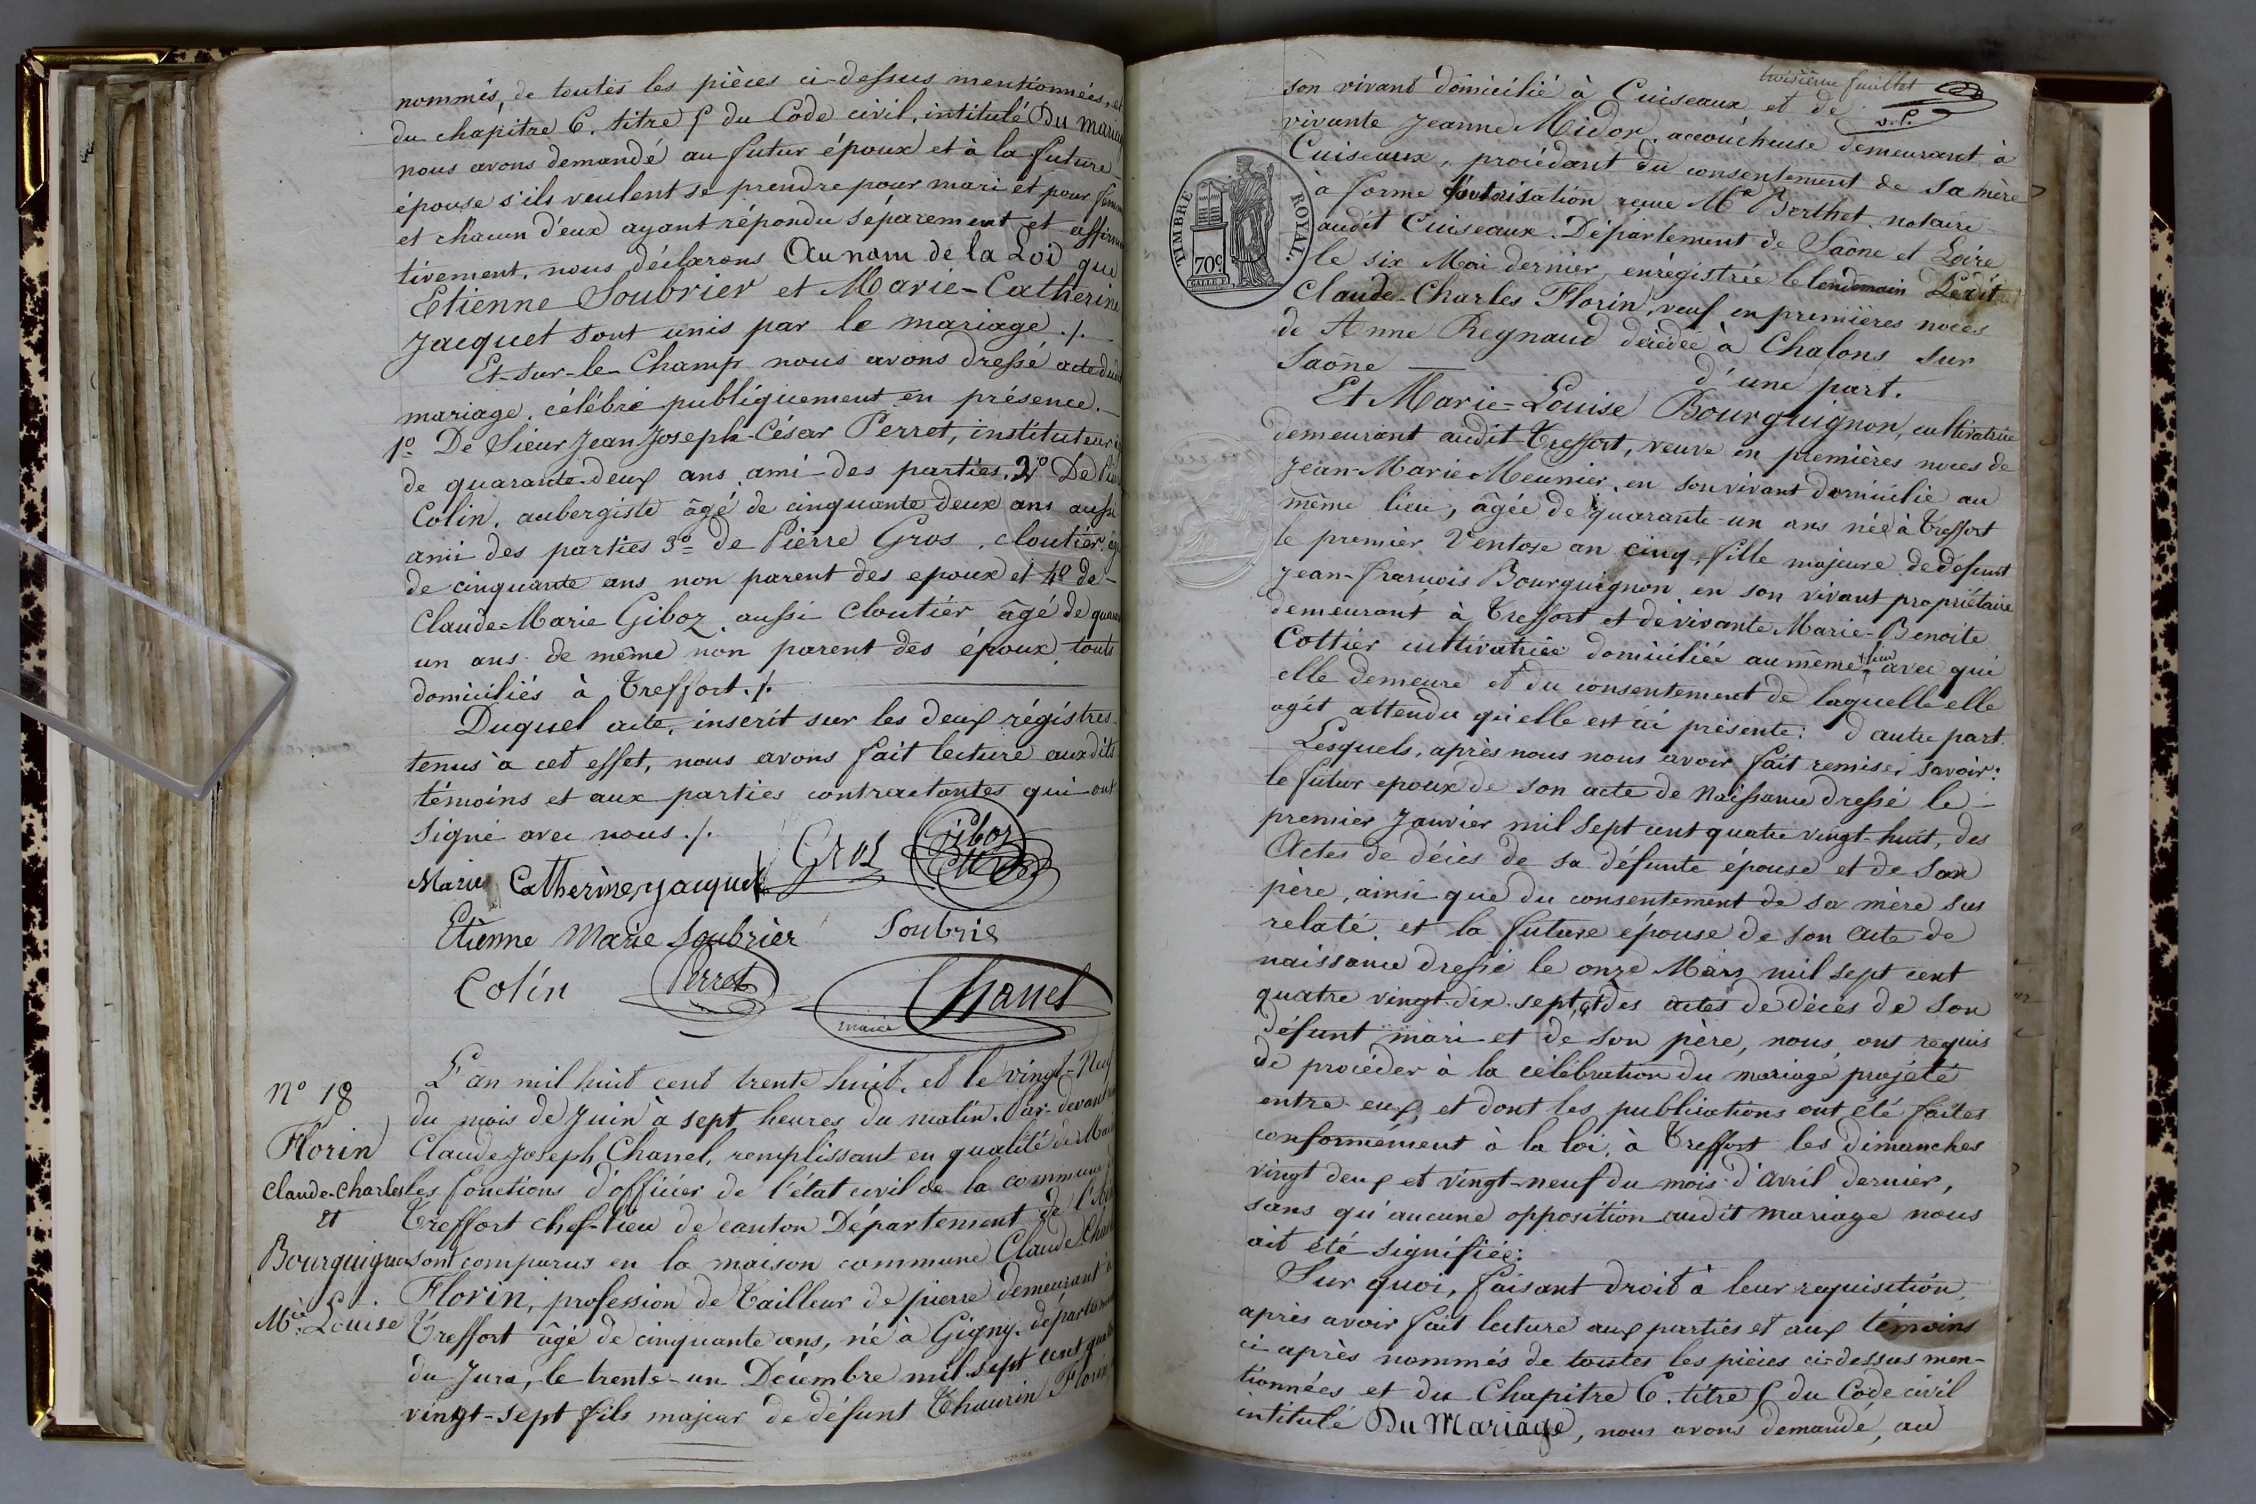 nommés, de toutes les pièces ci-dessus mentionnées, et
du chapitre 6. titre 5 du Code civil, intitulé Du mariage
nous avons demandé au futur époux et à la future
épouse s'ils veulent se prendre pour mari et pour femme
et chacun d'eux ayant répondu séparement et affirma
tivement, nous déclarons Au nom de la Loi que
Etienne Soubrier et Marie-Catherine
Jacquet sont unis par le mariage ./.
Et-sur-le-Champ nous avons dressé acte dudit
mariage, célébré publiquement en présence.
1º De Sieur Jean Joseph-César Perret, instituteur
de quarante-deux ans, ami des parties. 2º De
Colin, aubergiste âgé de cinquante deux ans aussi
ami des parties 3º de Pierre Gros, cloutier,
de cinquante ans non parent des epoux et 4º de
Claude-Marie Giboz, aussi cloutier âgé de quarante
un ans de même non parent des époux, touts
domiciliés à Treffort ./.
Duquel acte, inscrit sur les deux régistres
tenus à cet effet, nous avons fait lecture auxdits
témoins et aux parties contractantes qui ont
signé avec nous ./.
Gros Giboz
Marie Catherine jacquet
Etienne Marie Soubrier Soubrie
Colin Perret Chanel
maire
Nº 18
Florin
Claude-Charles
et
Bourguignon
Mie Louise
L'an mil huit cent trente huit, et le vingt-Neuf
du mois de Juin à sept heures du matin. Par-devant
Claude Joseph Chanel, remplissant en qualité de Maire
les fonctions d'officier de l'état civil de la commune
Treffort chef-lieu de canton Département de l'Ain
sont comparus en la maison commune Claude Charles
Florin, profession de Tailleur de pierre demeurant à
Treffort âgé de cinquante ans, né à Gigny, département
du Jura, le trente-un Décembre mil sept cent quatre
vingt-sept fils majeur de défunt Thaurin Florin
troisième feuillet
son vivant domicilié à Cuiseaux et de
vivante Jeanne Midor, accoucheuse demeurant à
Cuiseaux, procédant du consentement de sa mère
à forme d'autorisation reçue Me Berthet, notaire
audit Cuiseaux. Département de Saône et Loire
le six Mai dernier, enrégistrée le lendemain Ledit
Claude-Charles Florin, veuf en premières noces
de Anne Regnaud décédée à Chalons sur
Saône — d'une part.
TIMBRE ROYAL.
70c.
Et Marie-Louise Bourguignon, cultivatrice
demeurant audit Treffort, veuve en premières noces de
Jean-Marie Meunier, en son vivant domicilié au
même lieu, âgée de quarante-un ans née à Treffort
le premier Ventose an cinq, fille majeure de défunt
Jean-francois Bourguignon en son vivant propriétaire
demeurant à Treffort et de vivante Marie-Benoite
Cottier cultivatrice domiciliée au même lieu avec qui
elle demeure et du consentement de laquelle elle
agit attendu qu'elle est ici présente: d'autre part.
Lesquels, après nous nous avoir fait remise, savoir:
le futur epoux de son acte de Naissance dressé le
premier Janvier mil sept cent quatre vingt-huit, des
Actes de décès de sa défunte épouse et de son
père, ainsi que du consentement de sa mère sus
relaté, et la future épouse de son acte de
naissance dressé le onze Mars mil sept cent
quatre vingt-dix-sept, et des actes de décès de son
défunt mari et de son père, nous ont requis
de procéder à la célébration du mariage projeté
entre eux, et dont les publications ont été faites
conformément à la loi, à Treffort les dimanches
vingt deux et vingt-neuf du mois d'avril dernier,
sans qu'aucune opposition audit mariage nous
ait été signifiée:
Sur quoi, faisant droit à leur requisition,
après avoir fait lecture aux parties et aux témoins
ci après nommés de toutes les pièces ci-dessus men-
tionnées et du Chapitre 6. titre 5 du Code civil
intitulé Du Mariage, nous avons demandé, au